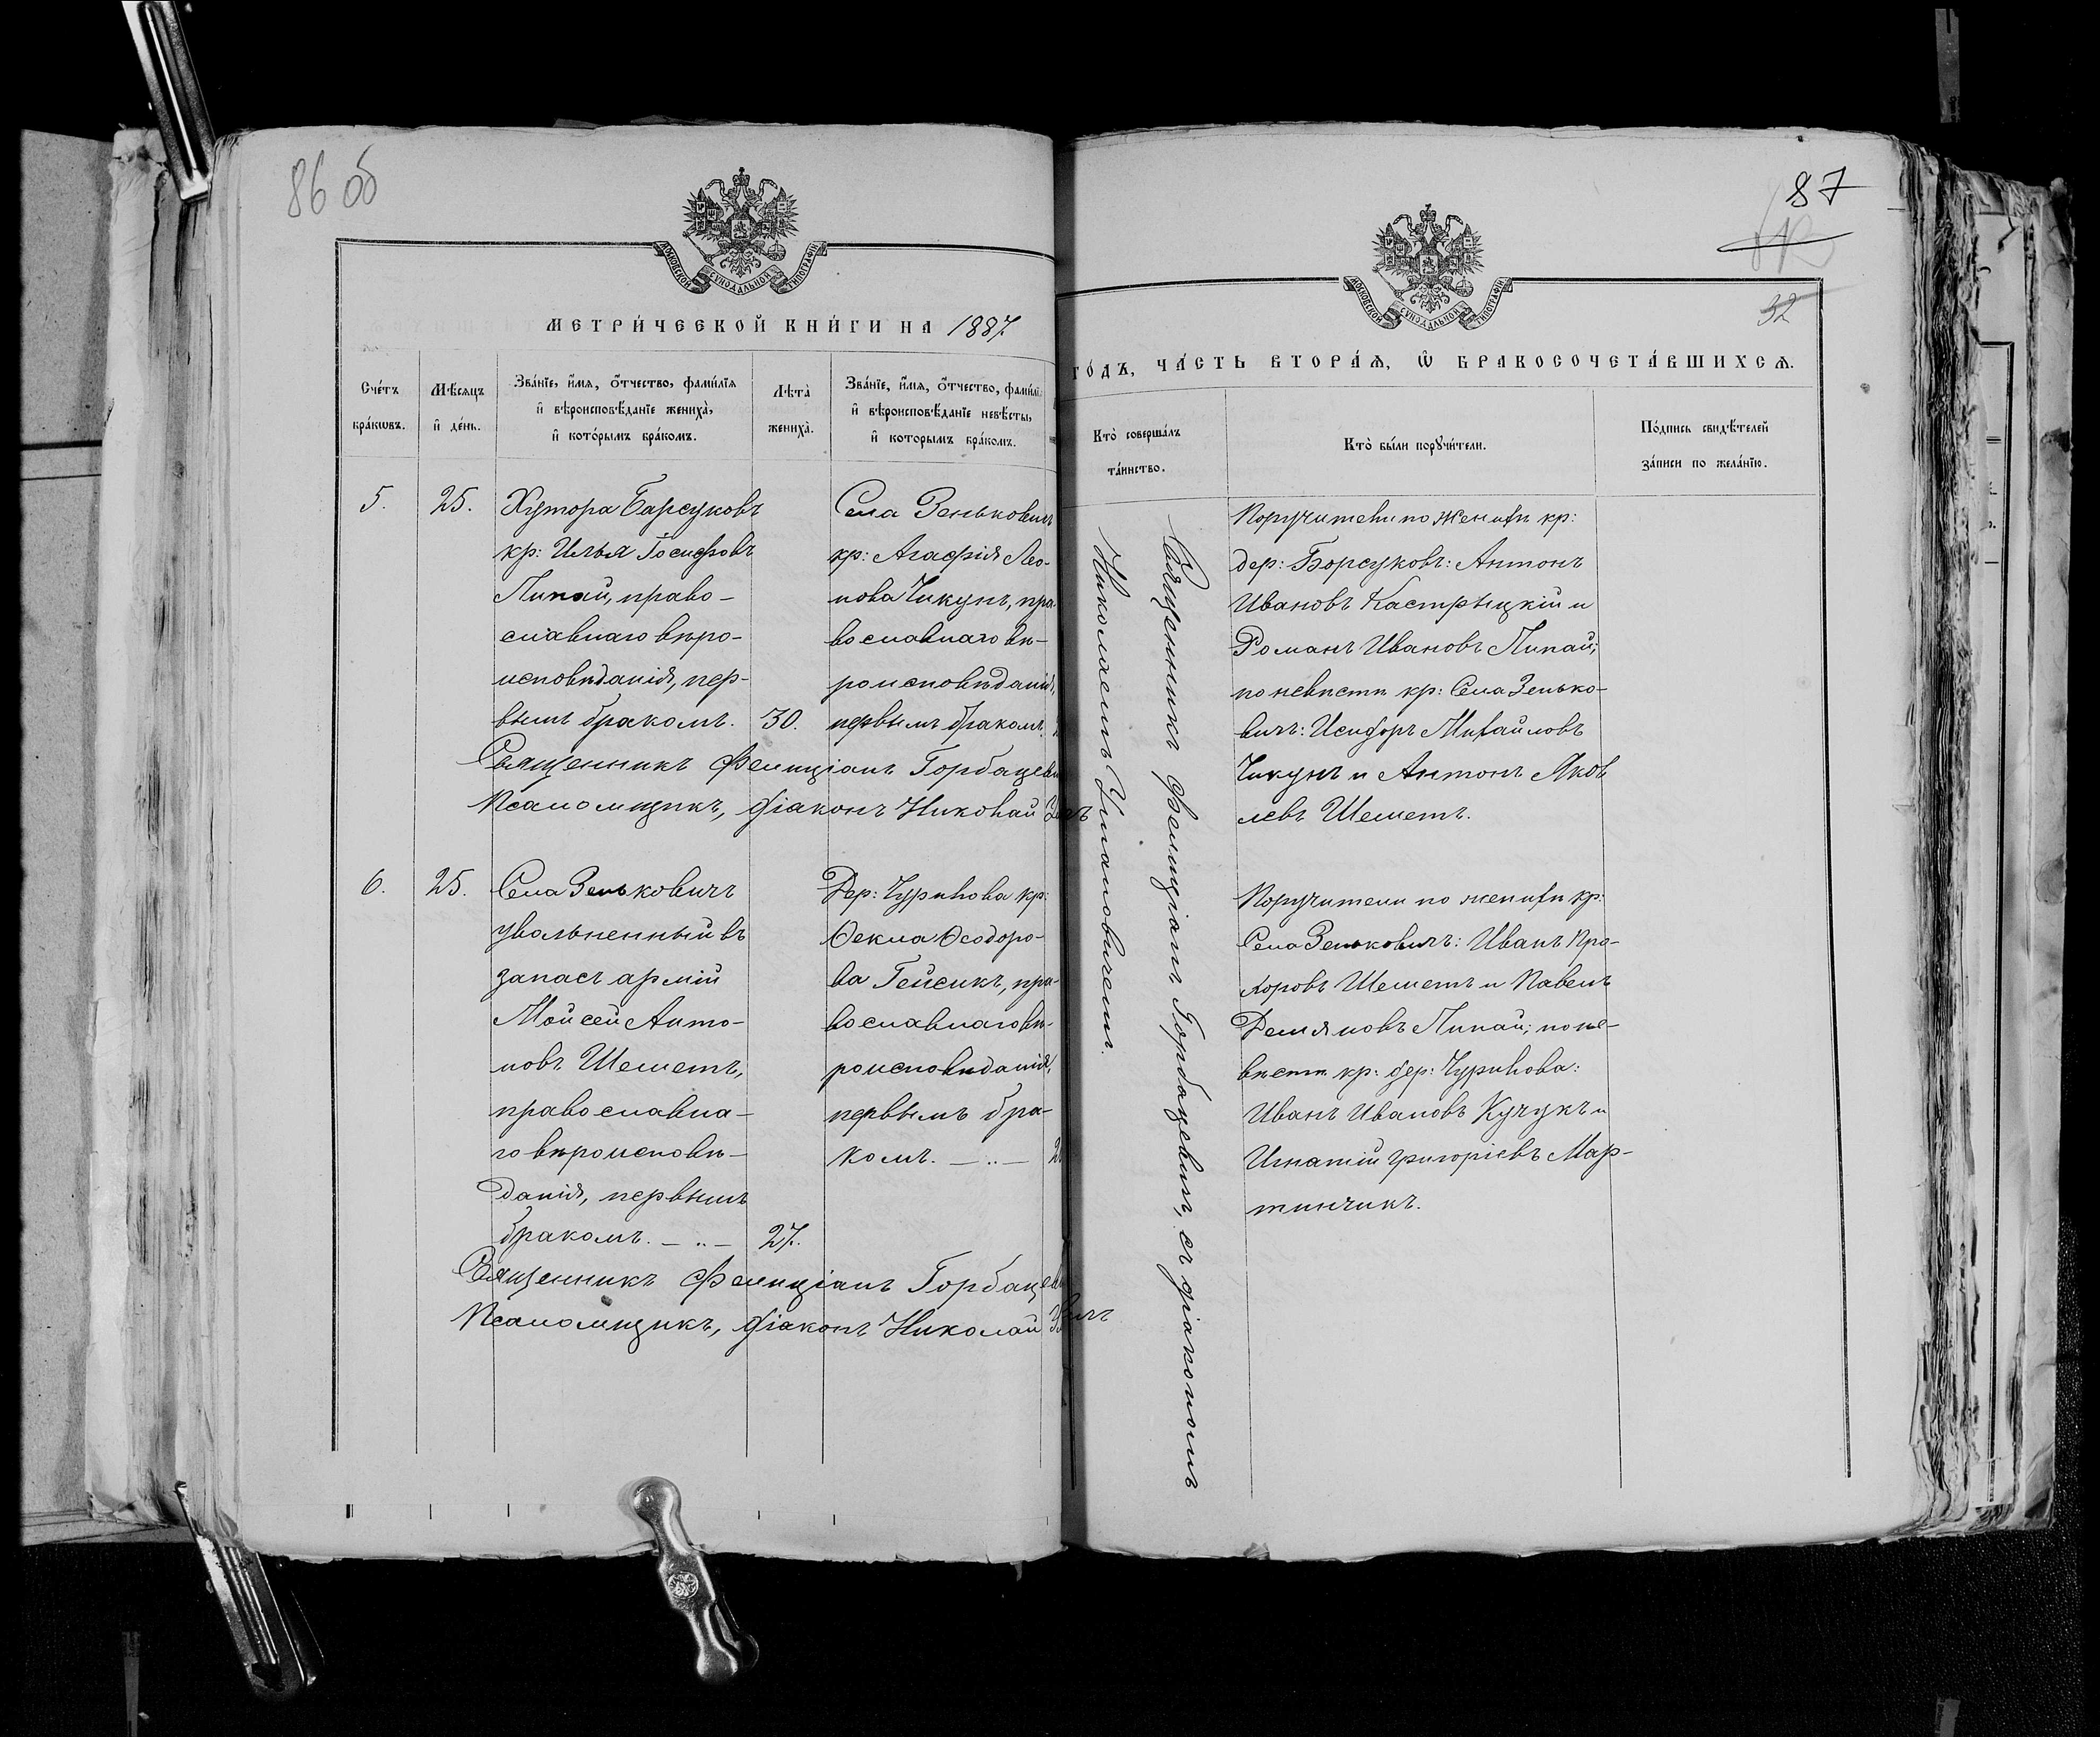 86 об
МОСКОВСКОЙ СѴНОДАЛЬНОЙ ТИПОГРАФІИ
МЕТРИ́ЧЕСКОЙ КНИ́ГИ НА 1887.
Сче́тъ бра́кѡвъ.
Мѣ́сяцъ и҆ де́нь.
Зва́нїе, и҆́мя, ѻ҆́тчество, фами́лїя
и҆ вѣроисповѣ́данїе жениха̀,
и҆ кото́рымъ бра́комъ.
Лѣта̀ жениха̀.
Зва́нїе, и҆́мя, ѻ҆́тчество, фами́лї
и҆ вѣроисповѣ́данїе невѣ́сты,
и҆ которымъ бра́комъ.
5.
25.
Хутора Барсуковъ
кр: Илья Іосифовъ
Липай, право-
славнаго вѣро-
исповѣданія, пер-
вымъ бракомъ.
30.
Села Зеньковичъ
кр: Агафія Лео-
нова Чикунъ, пра-
вославнаго вѣ-
роисповѣданія,
первымъ бракомъ.
Священникъ Фелиціанъ Горбацеви
Псаломщикъ, діаконъ Николай
6.
25.
Села Зеньковичъ
увольненный въ
запасъ армій
Мойсей Анто-
новъ Шеметъ,
православна-
го вѣроисповѣ-
данія, первымъ
бракомъ. — „ —
27.
Дер: Чурилова кр:
Ѳекла Ѳеодоро-
ва Гейсикъ, пра-
вославнаго вѣ-
роисповѣданія,
первымъ бра-
комъ. — „ —
Священникъ Фелиціанъ Горбацеви
Псаломщикъ, діаконъ Николай
87
32
МОСКОВСКОЙ СѴНОДАЛЬНОЙ ТИПОГРАФІИ
ГО́ДЪ, ЧА́СТЬ ВТОРА́Я, Ѽ БРАКОСОЧЕТА́ВШИХСЯ.
Кто̀ соверша́лъ
та́инство.
Кто̀ бы́ли порꙋчи́тели.
По́дпись свидѣ́телей
за́писи по жела́нїю.
Священникъ Фелиціанъ Горбацевичъ, съ діакономъ
Николаемъ
Поручители по женихѣ кр:
дер: Борсуковъ: Антонъ
Ивановъ Кастрицкій и
Романъ Ивановъ Липай;
по невѣстѣ кр: Села Зенько-
вичъ: Исидоръ Михайловъ
Чикунъ и Антонъ Яков
левъ Шеметъ.
Поручители по женихѣ кр:
Села Зеньковичъ: Иванъ Про-
хоровъ Шеметъ и Павелъ
Демяновъ Липай; по не-
вѣстѣ кр: дер: Чурилова:
Иванъ Ивановъ Кучукъ и
Игнатій Григоріевъ Мар-
тинчикъ.